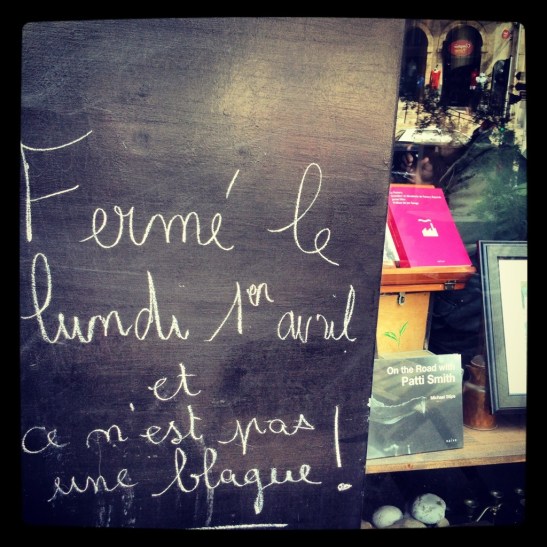 Fermé le
lundi 1er avril
et
ce n'est pas
une blague !
On the Road with
Patti Smith